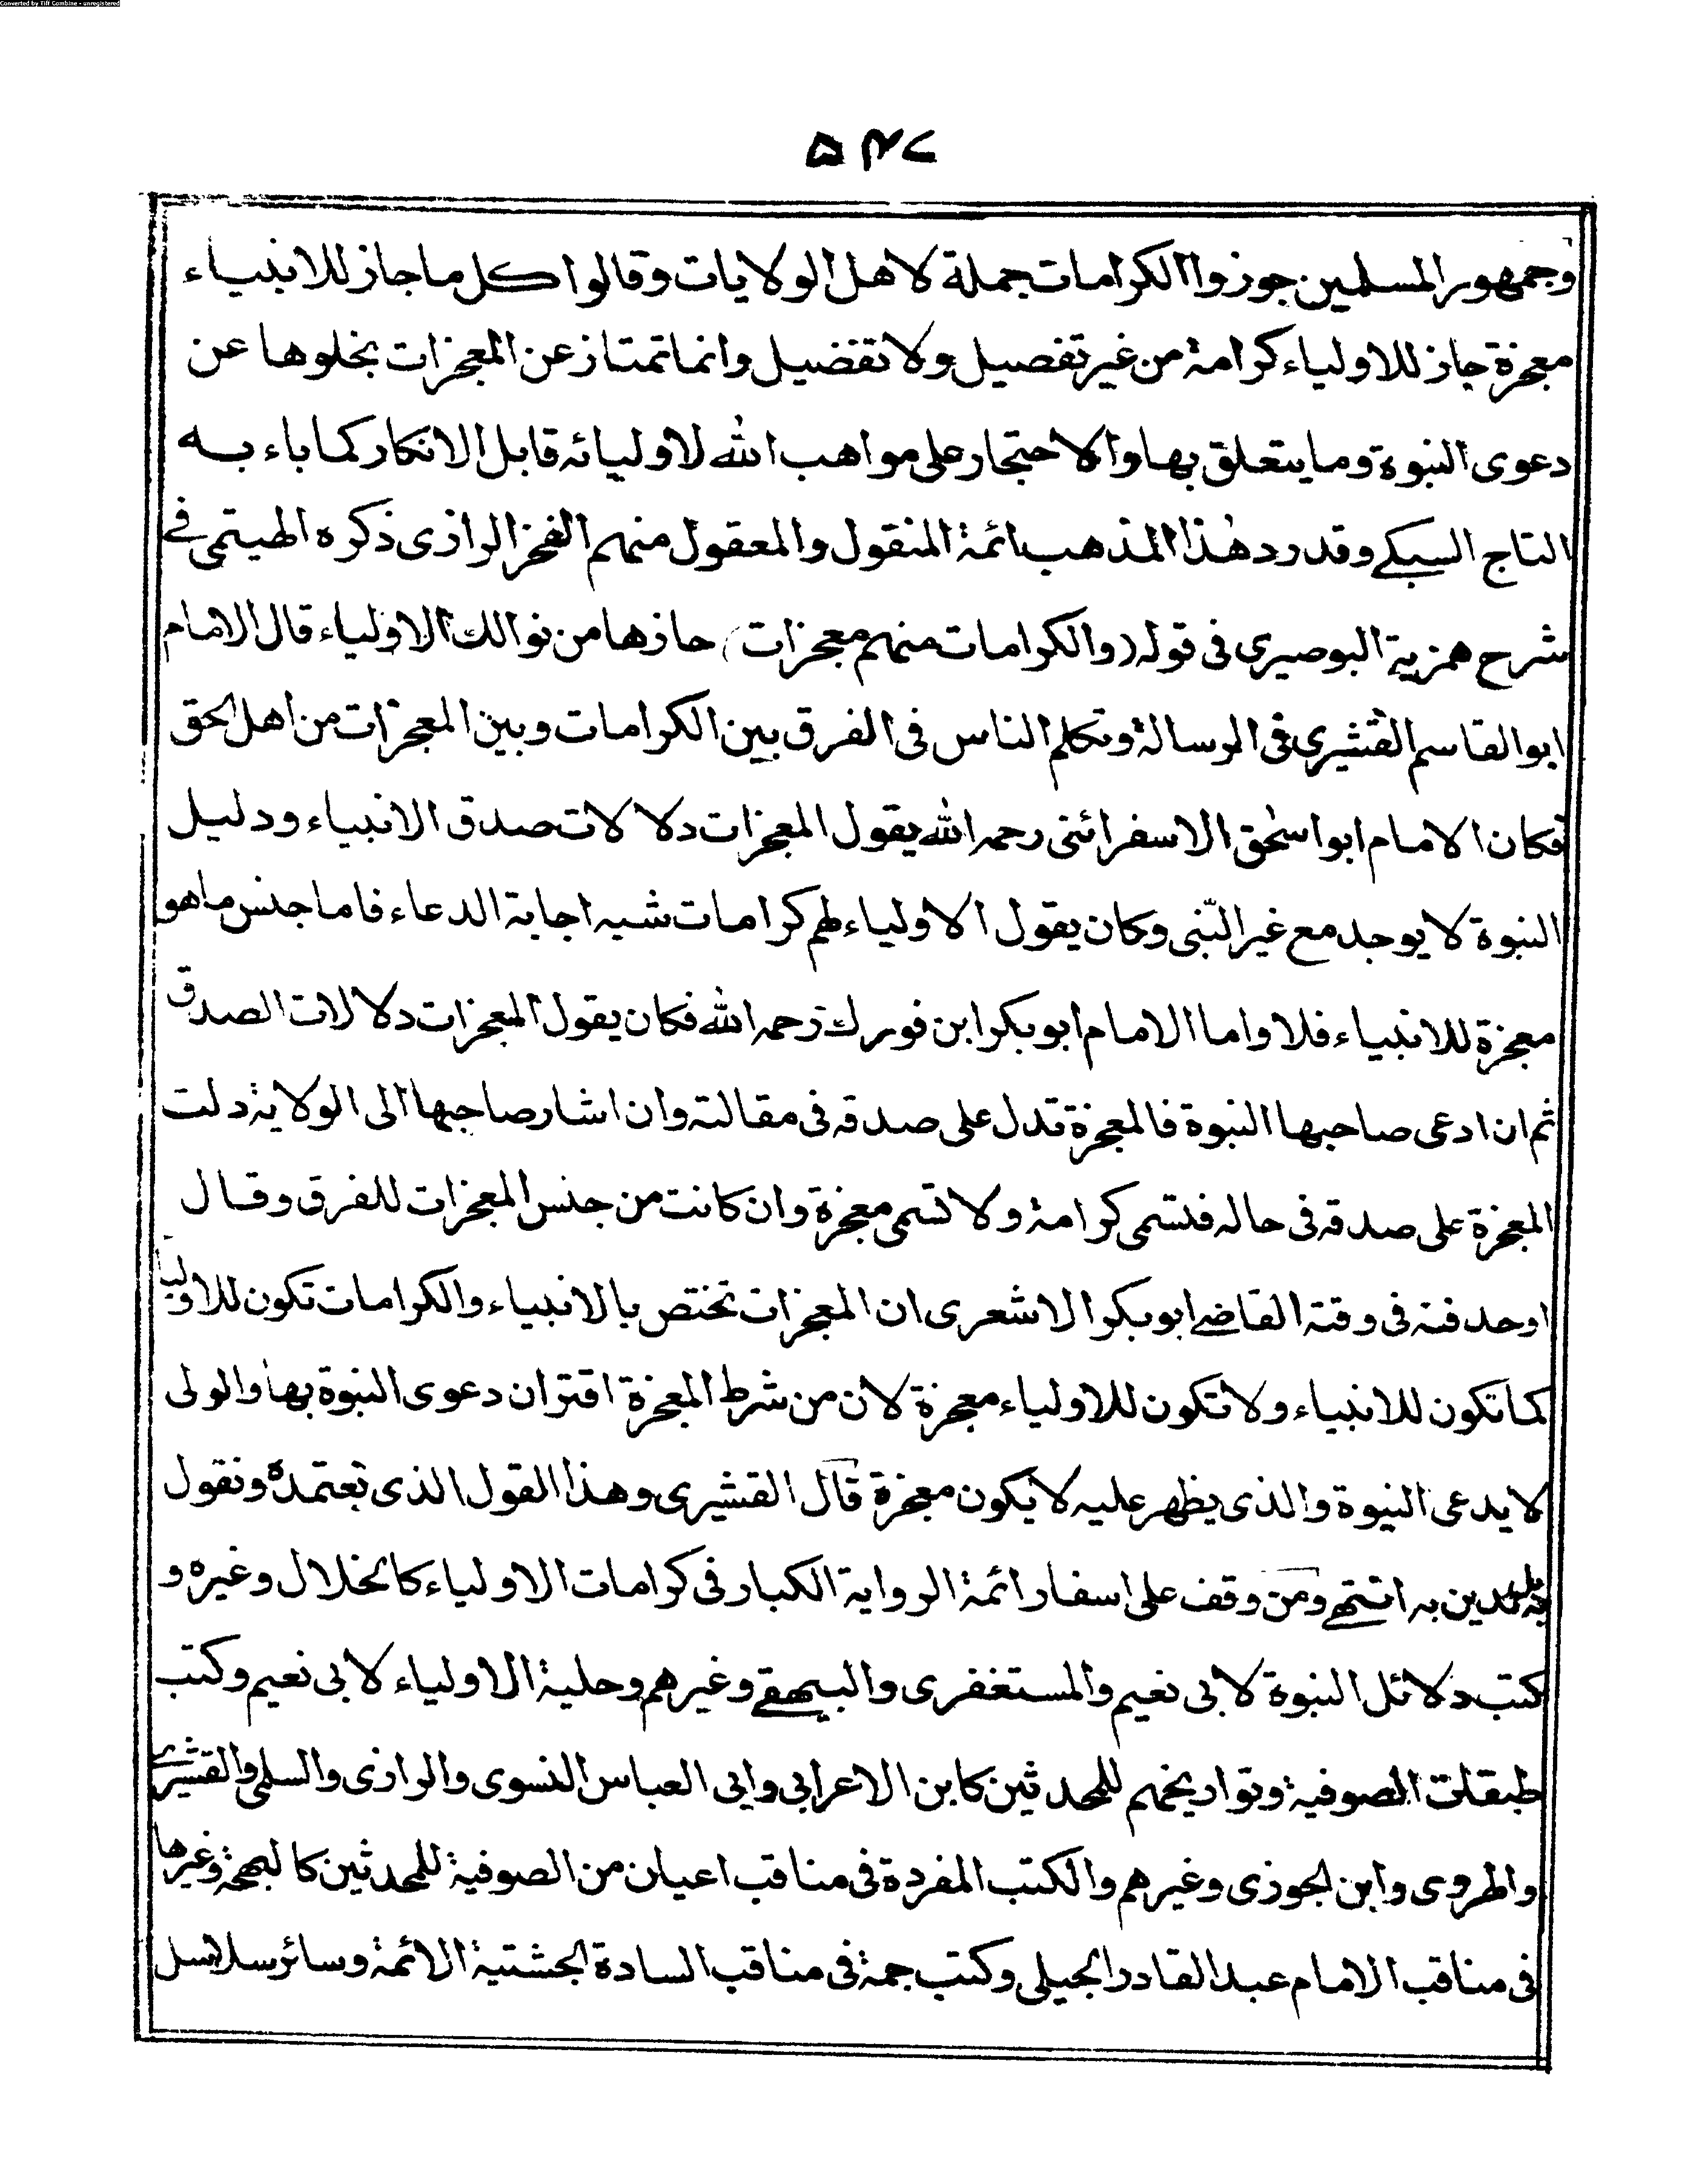 Converted by Tiff Combine - unregistered
۵۴۷
وجمهور المسلمين جوزوا الكرامات جملة لاهل الولايات وقالوا كل ما جاز للانبياء
معجزة جاز للاولياء كرامة من غير تفصيل ولا تفضيل وانما تمتاز عن المعجزات بخلوها عن
دعوى النبوة وما يتعلق بها والاحتجار على مواهب الله لاوليائه قابل الانكار كما باء به
التاج السبكي وقد رد هذا المذهب ائمة المنقول والمعقول منهم الفخر الرازى ذكره الهيتمى فے
شرح همزية البوصيرى فى قوله (والكرامات منهم معجزات) حازها من نوالك الاولياء قال الامام
ابو القاسم القشيرى فى الرسالة وتكلم الناس فى الفرق بين الكرامات وبين المعجزات من اهل الحق
فكان الامام ابو اسحٰق الاسفرائنى رحمه الله يقول المعجزات دلالات صدق الانبياء ودليل
النبوة لا يوجد مع غير النّبى وكان يقول الاولياء لهم كرامات شبه اجابة الدعاء فاما جنس ما هو
معجزة للانبياء فلا واما الامام ابو بكر ابن فورك رحمه الله فكان يقول المعجزات دلالات الصدق
ثم ان ادعى صاحبها النبوة فالمعجزة تدل على صدقه فى مقالته وان اشار صاحبها الى الولاية دلت
المعجزة على صدقه فى حاله فتسمى كرامة ولا تسمى معجزة وان كانت من جنس المعجزات للفرق وقال
اوحد فنه فى وقته القاضے ابو بكر الاشعرى ان المعجزات تختص بالانبياء والكرامات تكون للاوليا
كما تكون للانبياء ولا تكون للاولياء معجزة لان من شرط المعجزة اقتران دعوى النبوة بها والولى
لا يدعى النبوة والذى يظهر عليه لا يكون معجزة قال القشيرى وهذا القول الذى نعتمده ونقول
به بل ندين به انتهے ومن وقف على اسفار ائمة الرواية الكبار فى كرامات الاولياء كالخلال وغيره و
كتب دلائل النبوة لابى نعيم والمستغفرى والبيهقے وغيرهم وحلية الاولياء لابى نعيم وكتب
طبقات الصوفية وتواريخهم للمحدثين كابن الاعرابي وابى العباس النسوى والرازى والسلمى والقشيرے
والهروى وابن الجوزى وغيرهم والكتب المفردة فى مناقب اعيان من الصوفية للمحدثين كالبهجة وغيرها
فى مناقب الامام عبد القادر الجيلى وكتب جمة فى مناقب السادة الجشتية الائمة وسائر سلاسل